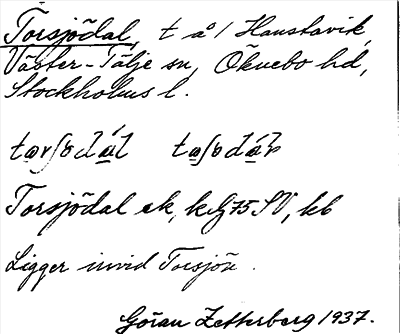 Torsjödal, t å/ Haustavik,
Väster-Tälje sn, Öknebo hd,
Stockholms l.
Torsjödal ek, kbg 75 SV, kb
Ligger invid Torsjön.
Göran Zetterberg 1937.